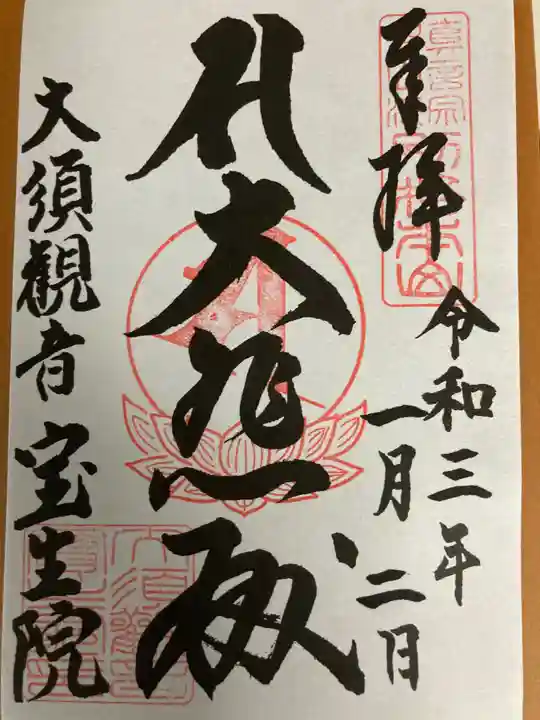 奉拝
令和三年
一月二日
大悲殿
大須観音 宝生院